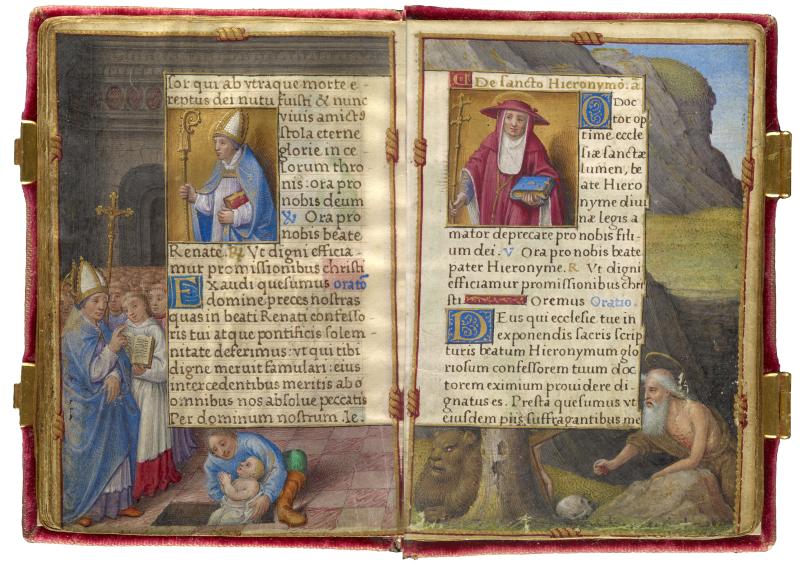 sor qui ab vtraque morte e-
reptus dei nutu fuisti & nunc
viuis amictꝰ
stola eterne
glorie in ce
lorum thro
nis: ora pro
nobis deum
℣ Ora pro
nobis beate
Renate. R Vt digni efficia-
mur promissionibus christi
Exaudi quesumus oratō
domine preces nostras
quas in beati Renati confesso
ris tui atque pontificis solem
nitate deferimus: vt qui tibi
digne meruit famulari: eius
intercedentibus meritis ab o
omnibus nos absolue peccatis
Per dominum nostrum Ie.
De sancto Hieronymo. a.
O Doc
tor op
time eccle
siæ sanctæ
lumen, be
ate Hiero
nyme diui
næ legis a
mator deprecare pro nobis fili-
um dei. V Ora pro nobis beate
pater Hieronyme. R Vt digni
efficiamur promissionibus chri
sti Oremus Oratio.
Deus qui ecclesie tue in
exponendis sacris scrip
turis beatum Hieronymum glo
riosum confessorem tuum doc
torem eximium prouidere di-
gnatus es. Presta quesumus vt
eiusdem piis suffragantibus me